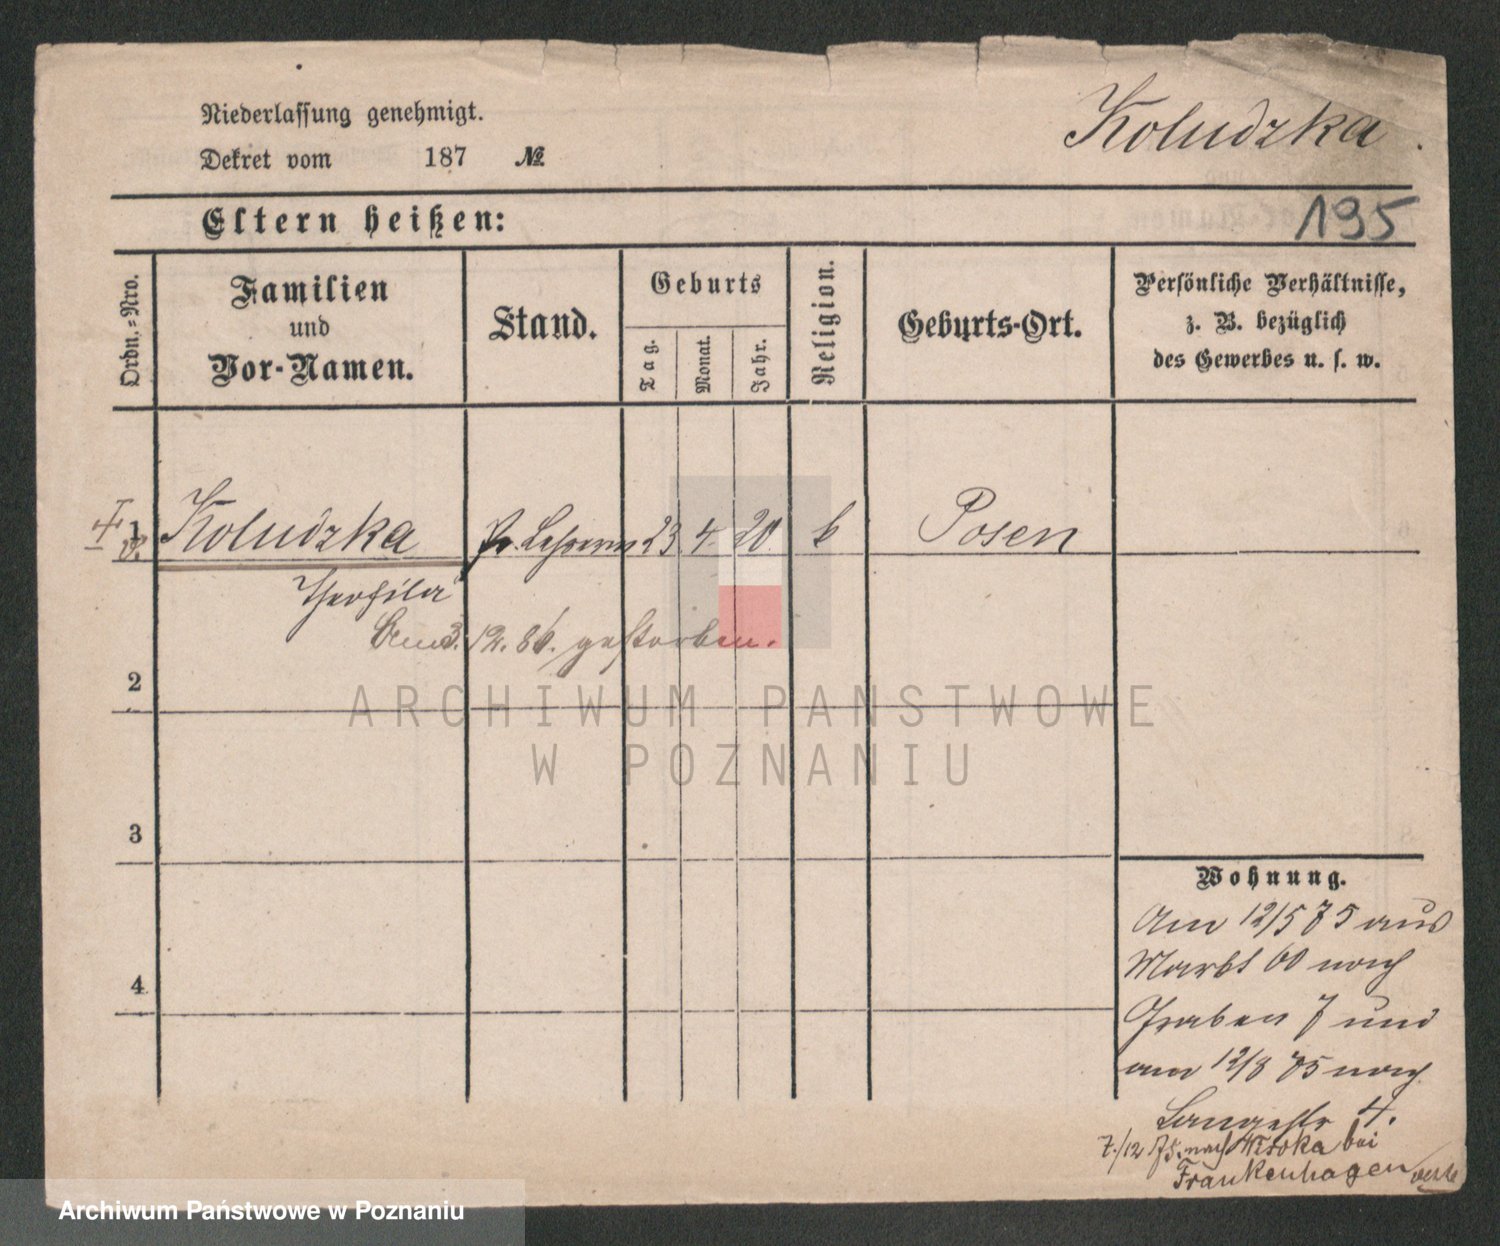 Niederlassung genehmigt.
Koludzka.
Dekret vom 187 №
Eltern heißen:
195
Ordn.=Nro.
Familien
und
Vor-Namen.
Stand.
Geburts
Tag.
Monat.
Jahr.
Religion.
Geburts-Ort.
Persönliche Verhältnisse,
z. B. bezüglich
des Gewerbes u. s. w.
1 Koludzka 23 4 20 k Posen
Theofila
Am 3. 12. 86. gestorben.
2
3
4
ARCHIWUM PAŃSTWOWE
W POZNANIU
Wohnung.
Am 12/5 75 aus
Markt 60 nach
Graben 7 und
am 12/8 75 nach
Langestr 4.
7./12 75. nach bei
Frankenhagen
Archiwum Państwowe w Poznaniu